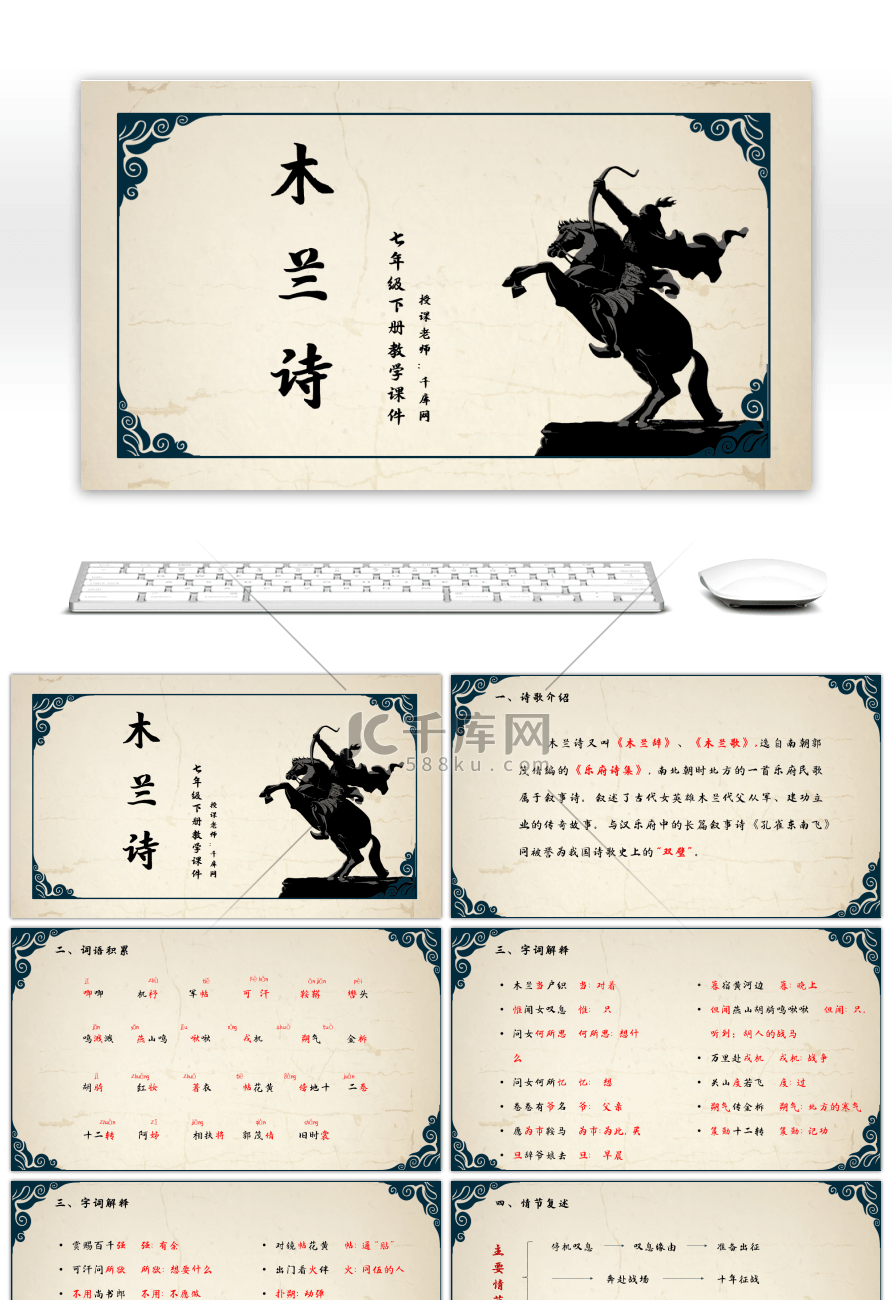 木兰诗
七年级下册教学课件
授课老师：千库网
千库网
588ku.com
木兰诗
七年级下册教学课件
授课老师：千库网
一、诗歌介绍
木兰诗又叫《木兰辞》、《木兰歌》,选自南朝郭
茂倩编的《乐府诗集》, 南北朝时北方的一首乐府民歌
属于叙事诗。叙述了古代女英雄木兰代父从军、建功立
业的传奇故事。与汉乐府中的长篇叙事诗《孔雀东南飞》
同被誉为我国诗歌史上的“双璧”。
二、词语积累
唧唧 机杼 军帖 可汗 鞍鞯 辔头
鸣溅溅 燕山鸣 啾啾 戎机 朔气 金柝
胡骑 红妆 著衣 帖花黄 傍地十 二卷
十二转 阿姊 相扶将 郭茂倩 旧时裳
三、字词解释
• 木兰当户织 当: 对着
• 惟闻女叹息 惟: 只
• 问女何所思 何所思: 想什
么
• 问女何所忆 忆: 想
• 卷卷有爷名 爷: 父亲
• 愿为市鞍马 为市:为此,买
• 旦辞爷娘去 旦: 早晨
• 暮宿黄河边 暮: 晚上
• 但闻燕山胡骑鸣啾啾 但闻: 只,
听到; 胡人的战马
• 万里赴戎机 戎机: 战争
• 关山度若飞 度: 过
• 朔气传金柝 朔气: 北方的寒气
• 策勋十二转 策勋: 记功
三、字词解释
• 赏赐百千强 强: 有余
• 可汗问所欲 所欲: 想要什么
• 不用尚书郎 不用: 不愿做
• 对镜帖花黄 帖: 通“贴”
• 出门看火伴 火: 同伍的人
• 扑朔: 动弹
四、情节复述
主要情
停机叹息 叹息缘由 准备出征
奔赴战场 十年征战